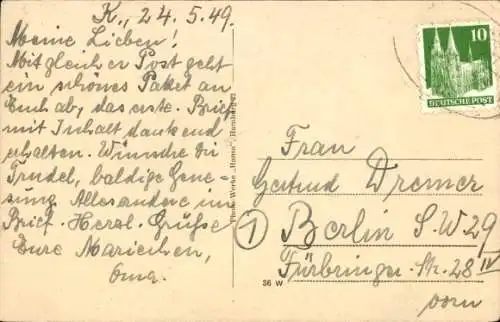 K., 24.5.49.
Meine Lieben!
Mit gleicher Post geht
ein schönes Paket an
Euch ab, das erste. Brief
mit Inhalt dankend
erhalten. Wünsche dir
Trudel, baldige Gene-
sung. Alles andere im
Brief. Herzl. Grüße
Eure Mariechen,
Oma.
Photo-Werke „Hansa“, Hamburg
36 W
10
DEUTSCHE POST
Frau
Gertrud Dremer
1 Berlin S.W. 29
Fürbringer-Str. 28 IV
vorn